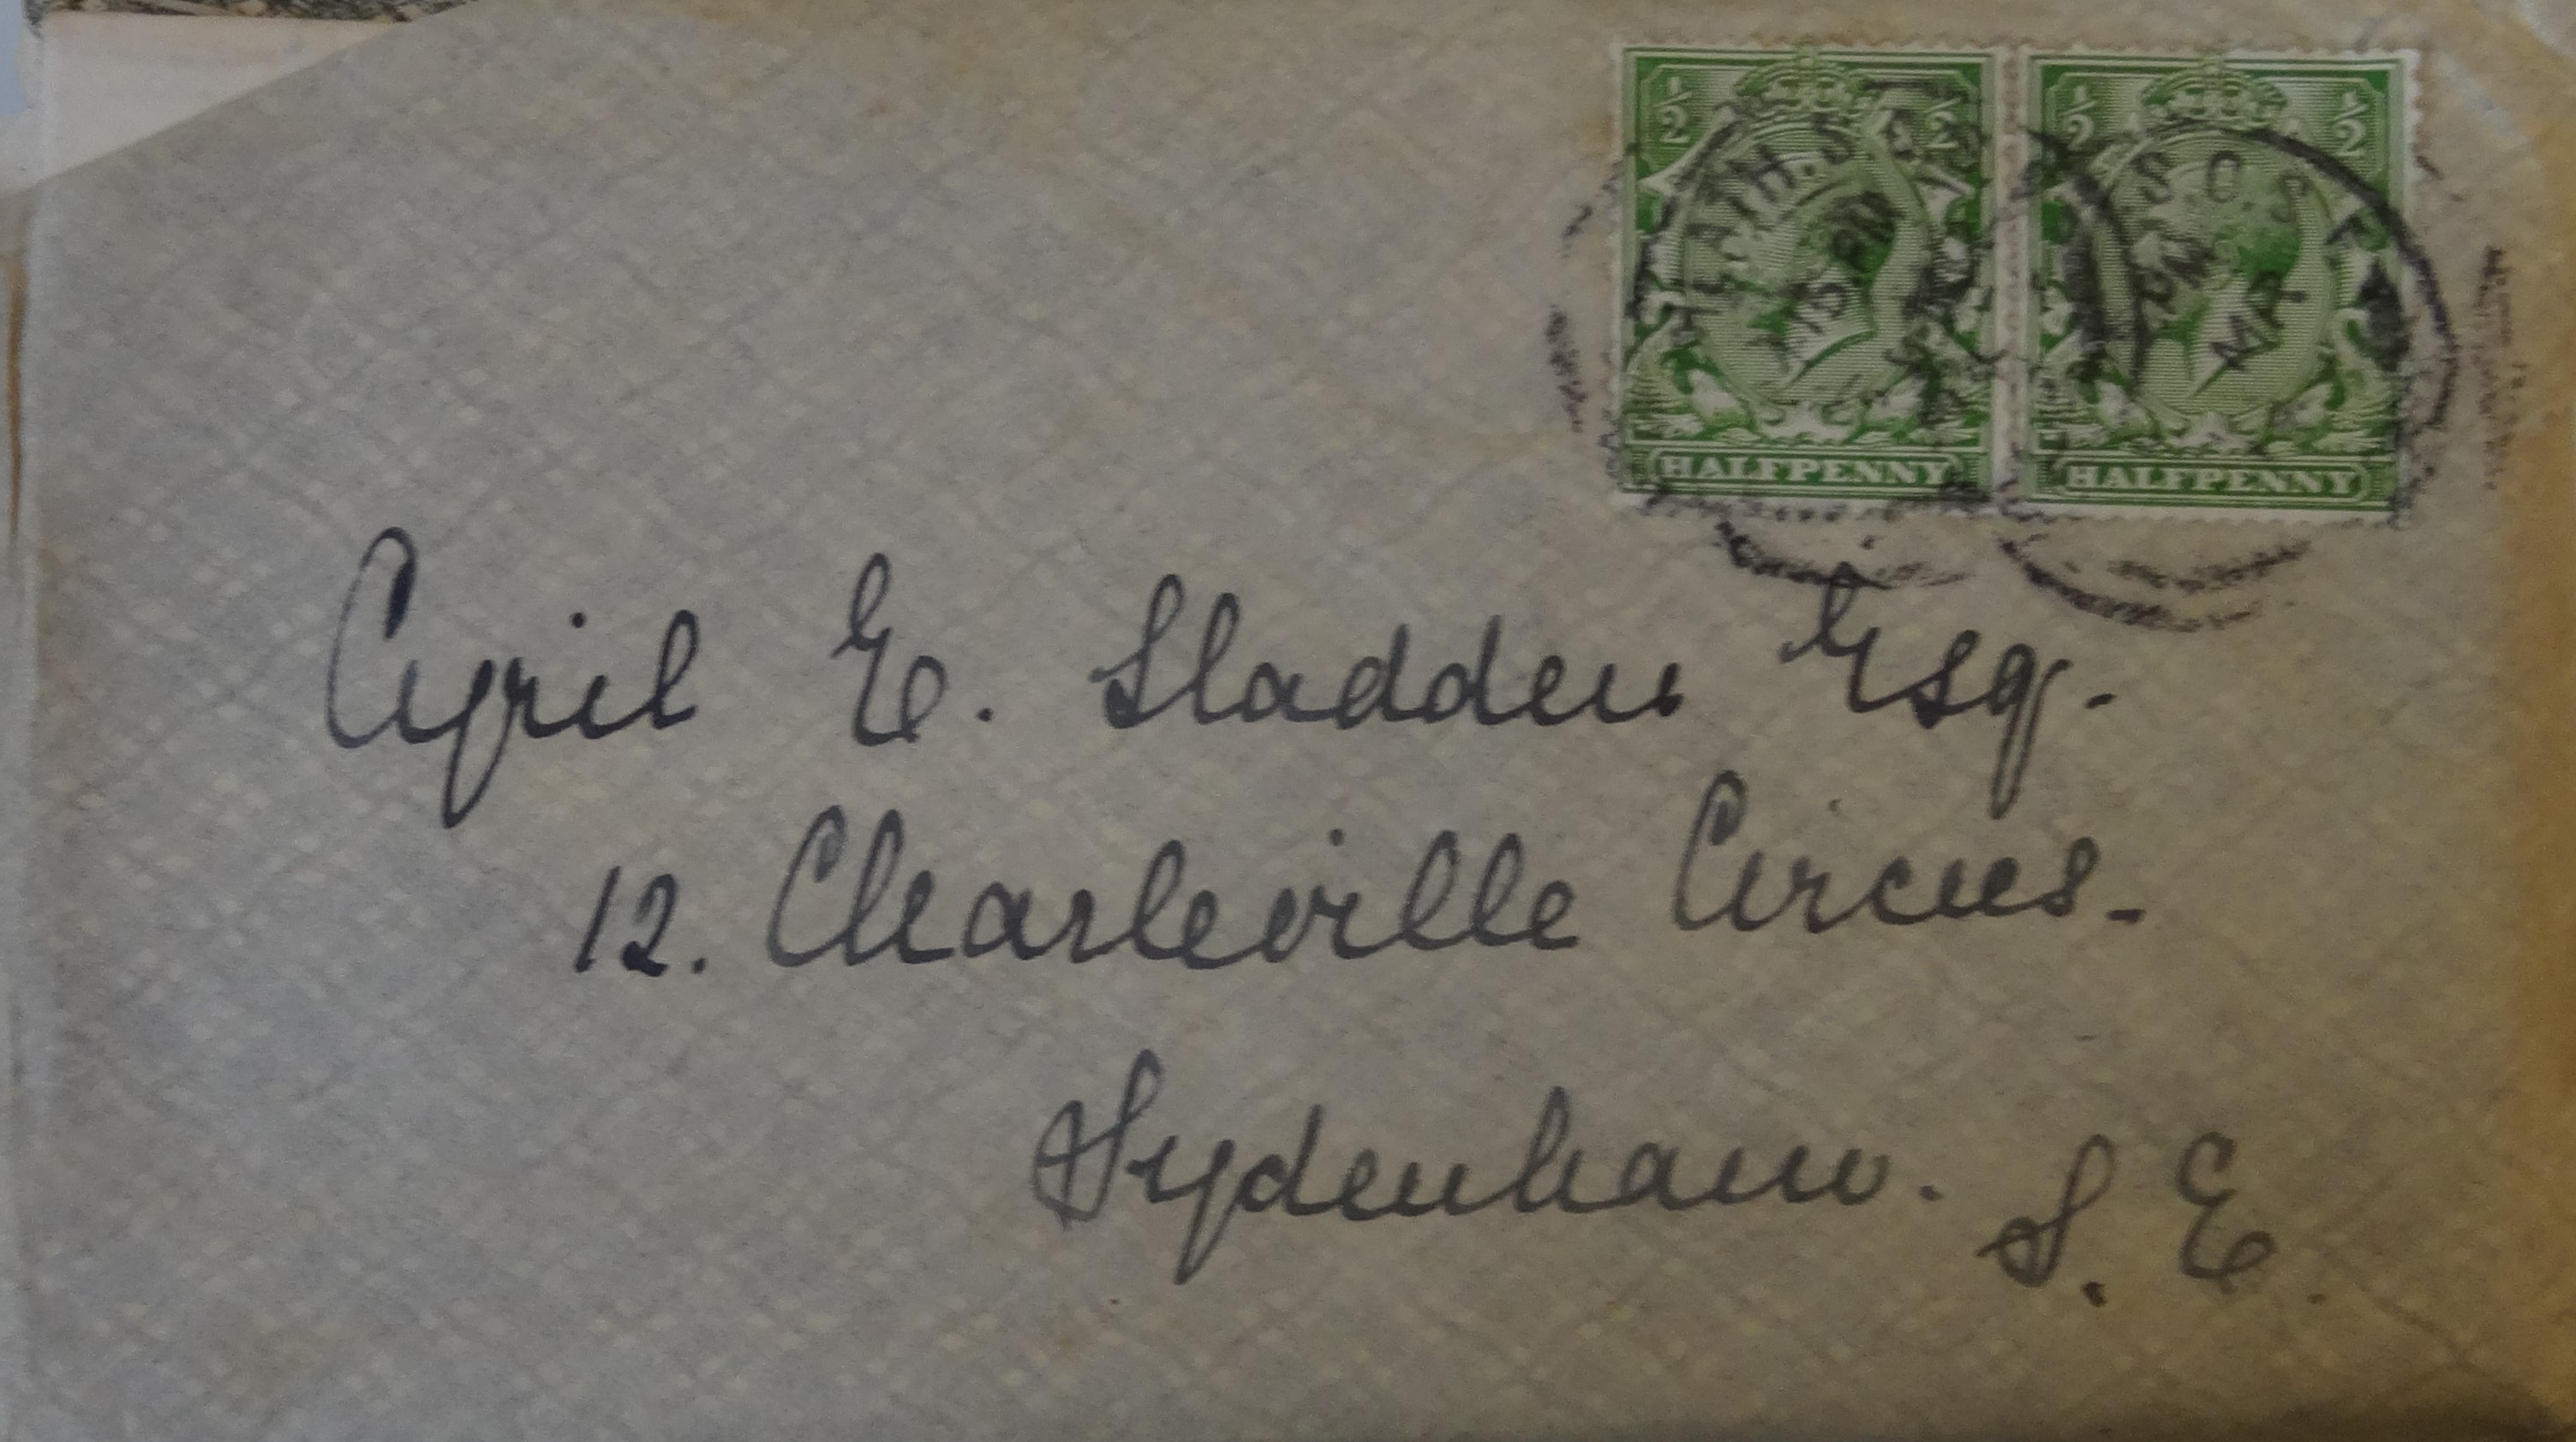 ½ ½ ½ ½
HALFPENNY HALFPENNY
Cyril E. Sladden Esq.
12. Charleville Circus.
Sydenham. S.E.